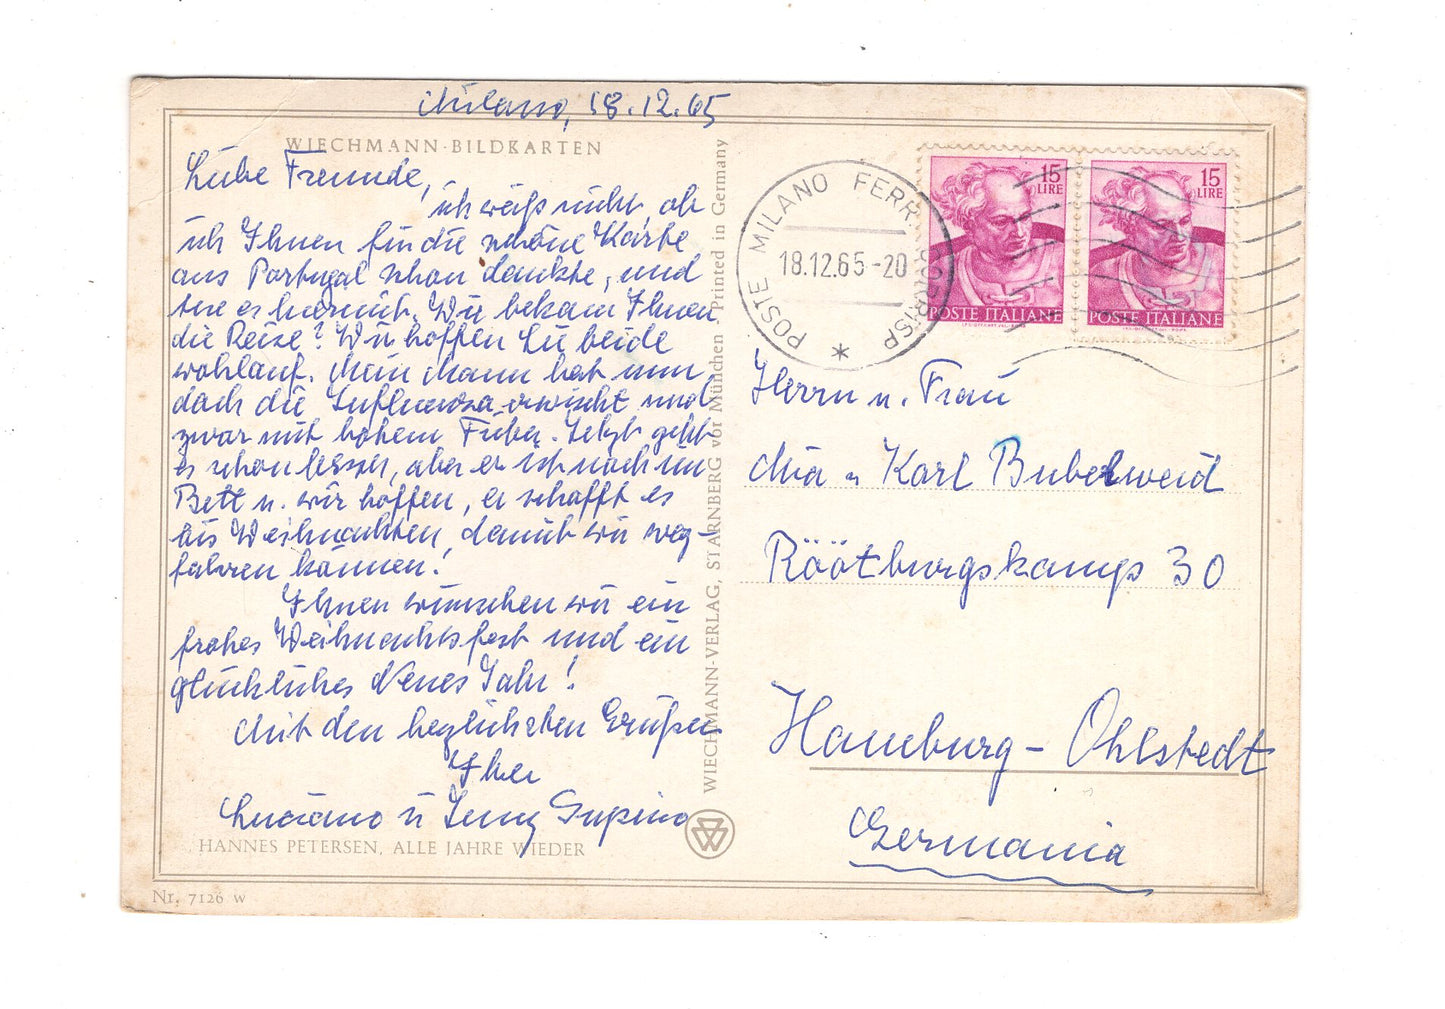 Milano, 18.12.65
WIECHMANN-BILDKARTEN
Liebe Freunde,
ich weiß nicht, ob
ich Ihnen für die schöne Karte
aus Portugal schon dankte, und
tue es hiermit. Wie bekam Ihnen
die Reise? Wir hoffen Sie beide
wohlauf. Mein Mann hat nun
doch die Influenza erwischt und
zwar mit hohem Fieber. Jetzt geht
es schon besser, aber er ist noch im
Bett u. wir hoffen, er schafft es
bis Weihnachten, damit wir weg-
fahren können!
Ihnen wünschen wir ein
frohes Weihnachtsfest und ein
glückliches Neues Jahr!
Mit den herzlichsten Grüßen
Ihre
Luciano u Jenny
HANNES PETERSEN, ALLE JAHRE WIEDER
Nr. 7126 W
WIECHMANN-VERLAG, STARNBERG vor München · Printed in Germany
POSTE MILANO FERR. CORRISP
18.12.65-20
15
LIRE
POSTE ITALIANE
15
LIRE
POSTE ITALIANE
Herrn u. Frau
Mia u Karl Bubelweid
Röötburgskamp 30
Hamburg - Ohlstedt
Germania